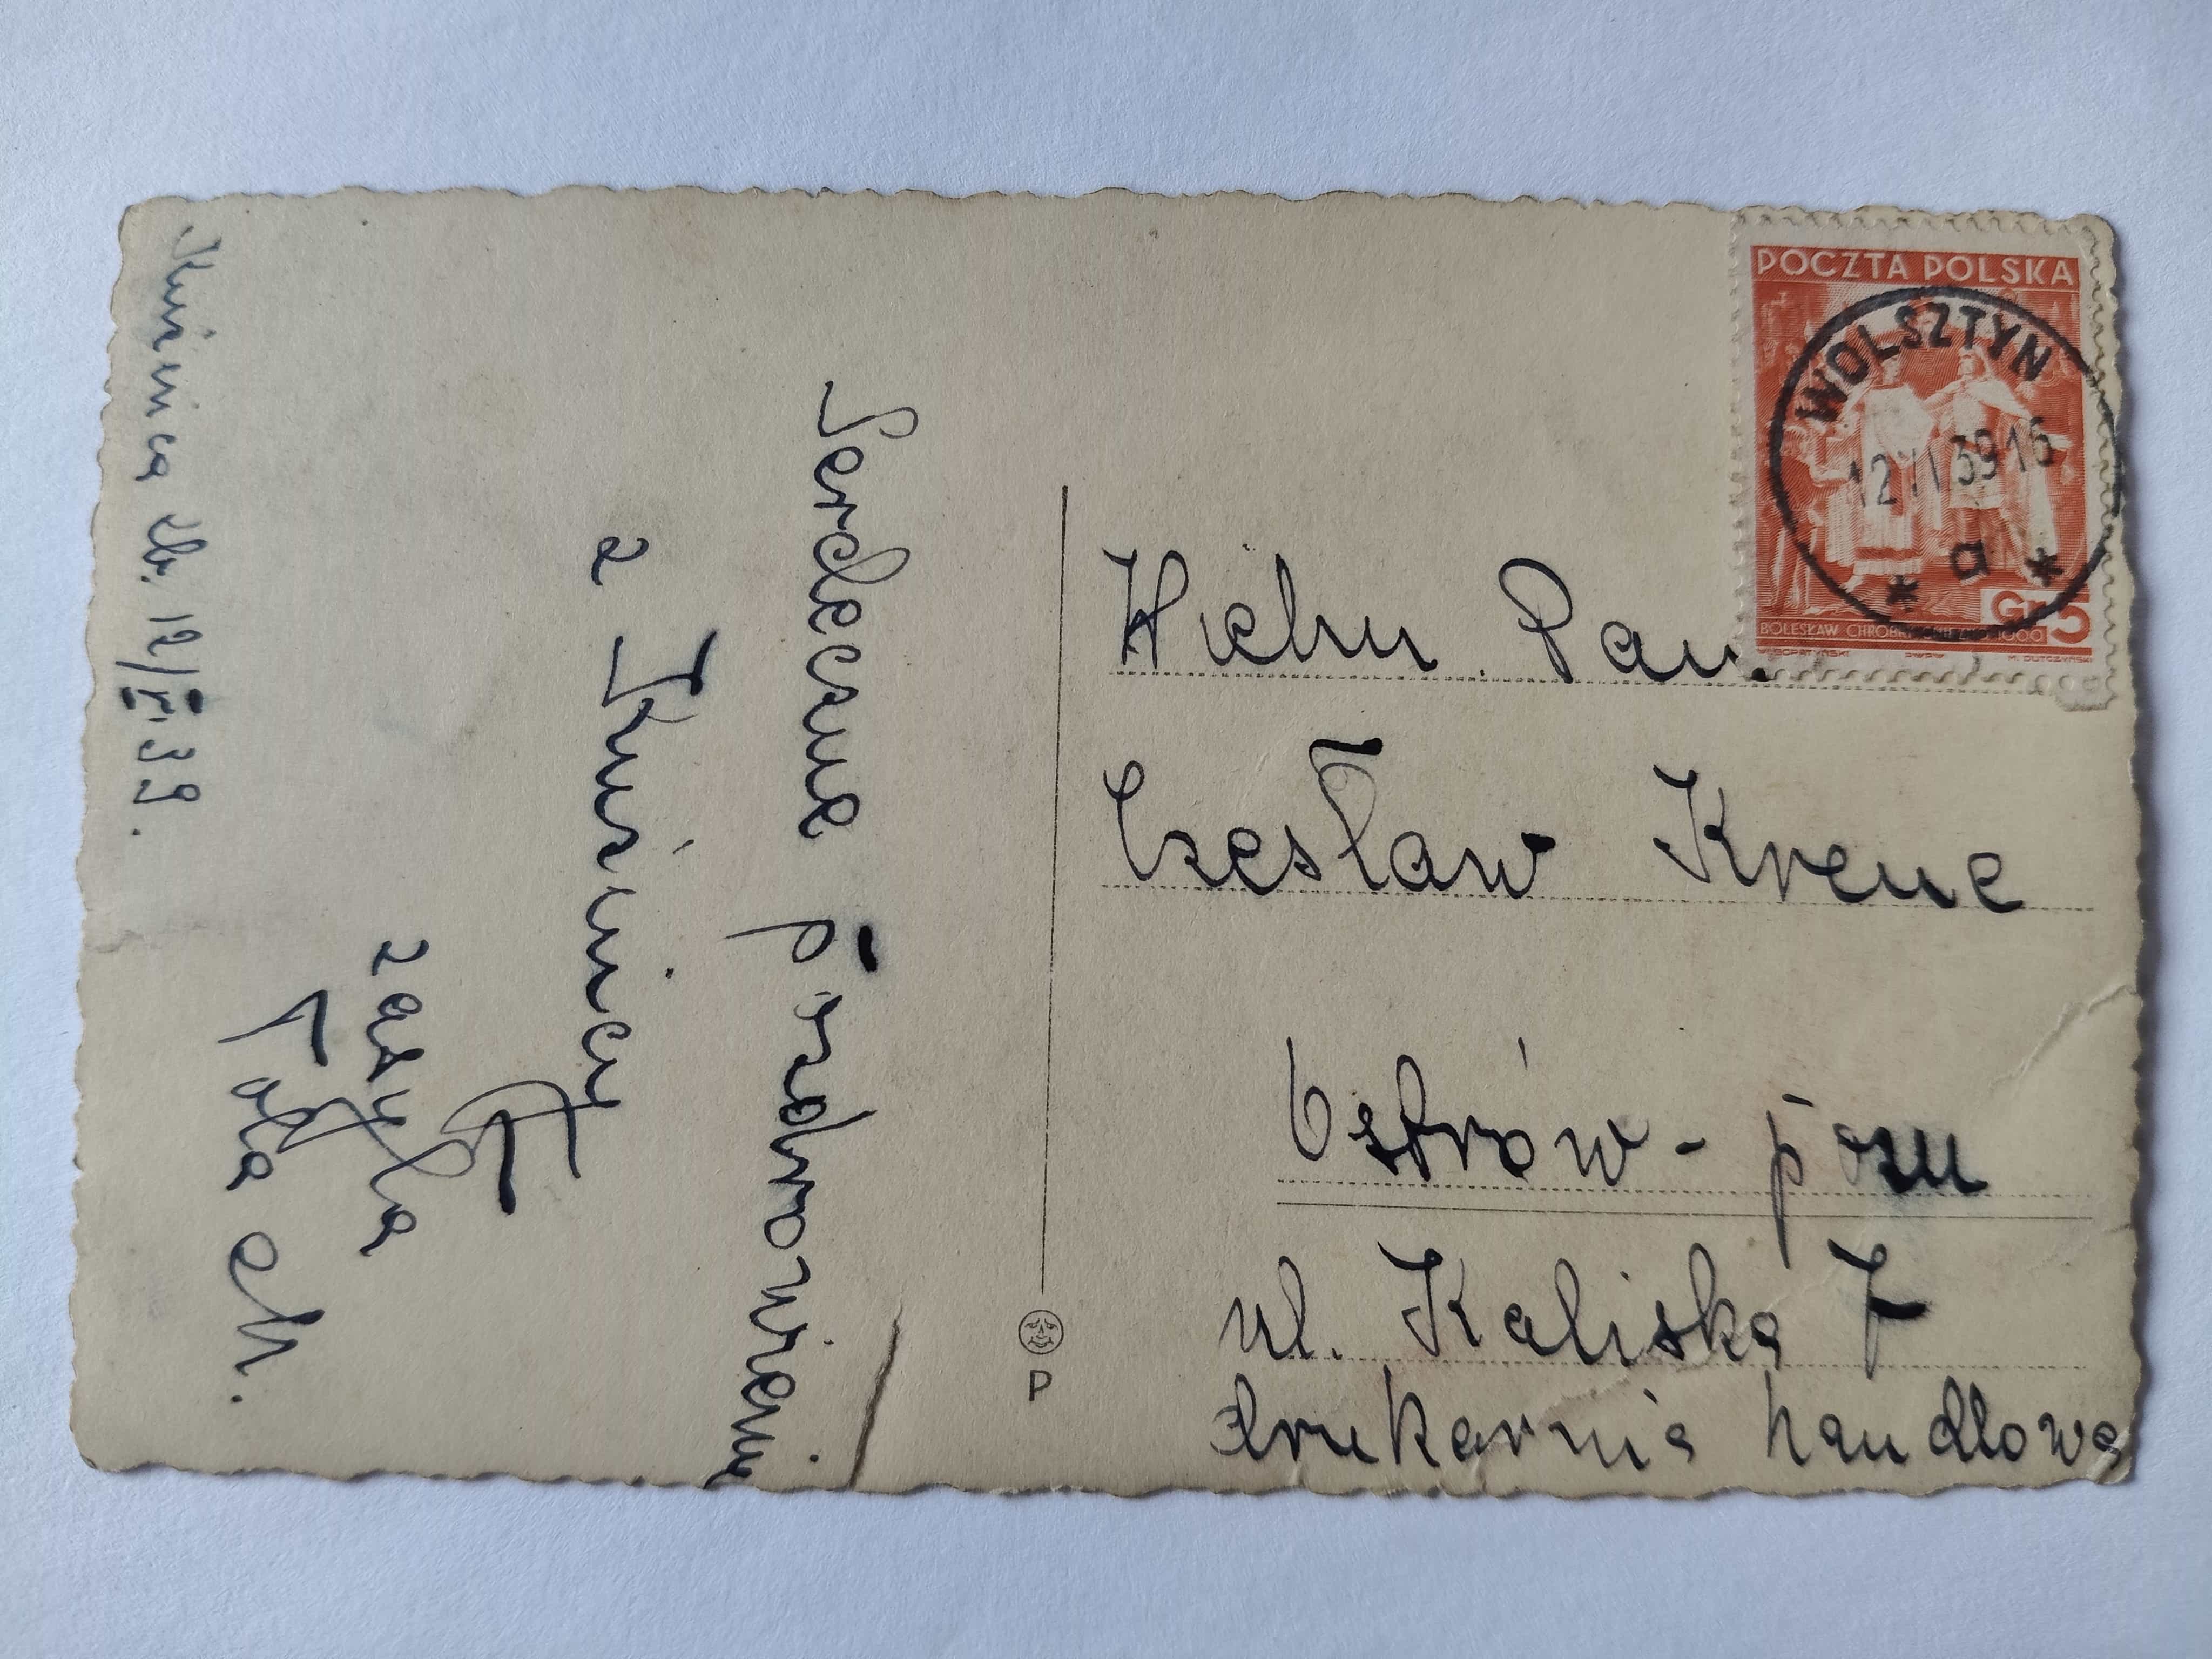 Kuźnica zb. 12/VI.39.
Serdeczne pozdrowienia
z Kuźnicy
zasyła
Pola M.
POCZTA POLSKA
WOLSZTYN
12 VI 39 16
* a *
Gr 5
BOLESŁAW CHROBRY
Wielm. Pan
Czesław Krenc
Ostrów - pozn
ul. Kaliska 7
drukarnia handlowa
P